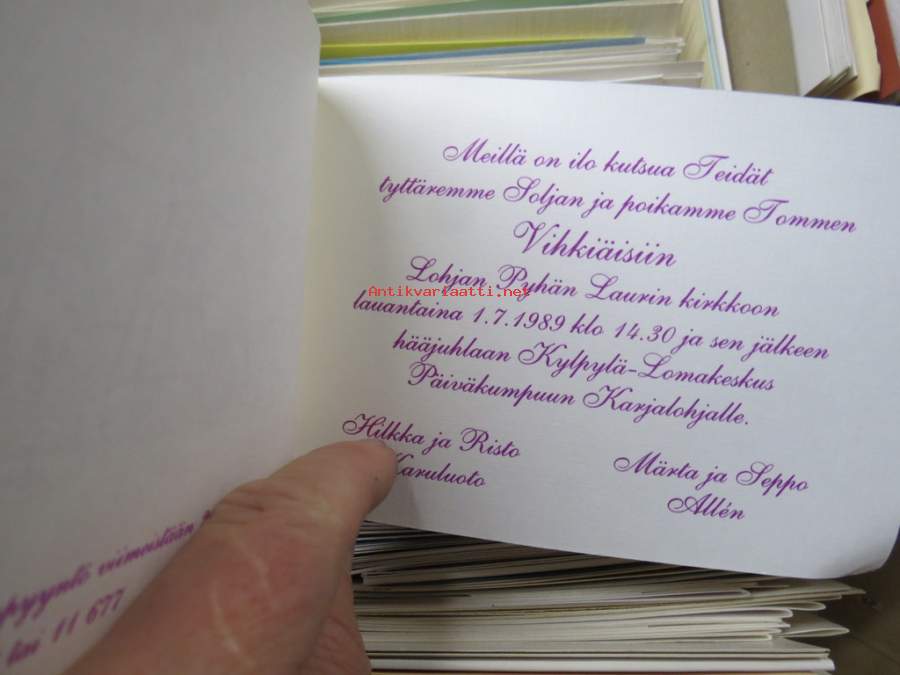 Meillä on ilo kutsua Teidät
tyttäremme Soljan ja poikamme Tommen
Vihkiäisiin
Lohjan Pyhän Laurin kirkkoon
lauantaina 1.7.1989 klo 14.30 ja sen jälkeen
hääjuhlaan Kylpylä-Lomakeskus
Päiväkumpuun Karjalohjalle.
Hilkka ja Risto
Karuluoto
Märta ja Seppo
Allén
Antikvariaatti.net
viimeistään
tai 11 677